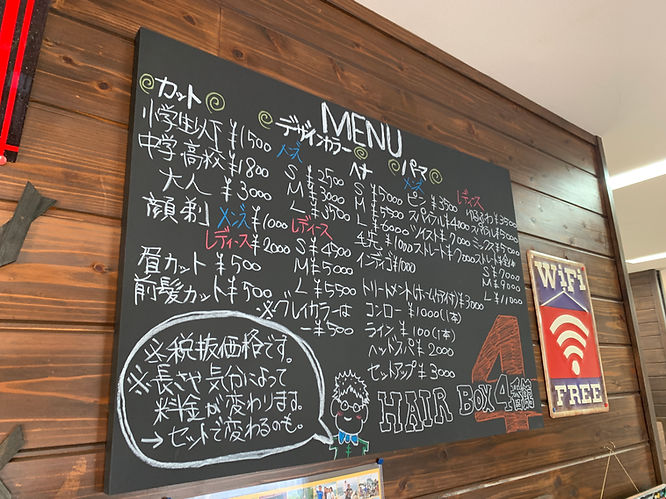 MENU
カット
小学生以下 ¥1500
中学高校 ¥1800
大人 ¥3000
顔剃 メンズ ¥1000
レディース ¥2000
眉カット ¥500
前髪カット ¥500
デザインカラー
メンズ
S ¥2500
M ¥3000
L ¥3500
レディース
S ¥4500
M ¥5000
L ¥5500
※グレイカラーは
-¥500
ヘナ
S ¥5000
M ¥5500
L ¥6000
毛先 ¥1000
インディゴ ¥1000
パーマ
メンズ
ピン ¥3500
スパイラル ¥4400
ツイスト ¥7000
ストレート ¥7000
レディース
¥3500
¥5000
ミックス ¥5500
ストレート
S ¥7000
M ¥9000
L ¥11000
トリートメント(ホームケア付) ¥3000
コンロー ¥1000(1本)
ライン ¥100(1本)
ヘッドスパ ¥2000
セットアップ ¥3000
※税抜価格です。
※長さや気分によって
料金が変わります。
→セットで変わるのも。
HAIR BOX 4
4
WiFi
FREE